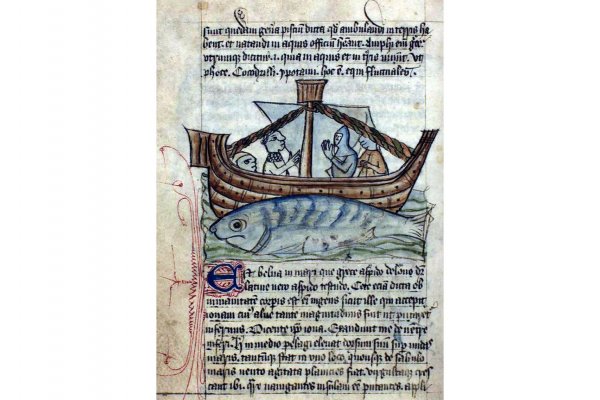 sunt quedam gena pisciu dicta qd ambulandi in terris ha
bent. et natandi in aquis officiu Amphi em gre
utrumque dicitur .i. quia in aquis et in tris uiuunt. Vt
phoce. Cocodrilli. ypotami. hoc e. equi fluctuales.
Est belua in mari que grece aspido delone dr
latine uero aspido testudo. Cete eciam dicta ob
inmanitatem corpis est eni ingens sicut ille qui accepit
ionam cui alue tante magnitudinis fuit ut putaret
infernus. Dicente ipo iona. Exaudiuit me de uentre
inferi. in medio pelagi eleuat dorsum suum sup undas
maris. tantumque stat in uno loco quousque de sabulo
maris uento agitata planicies fiat. uirgultaque cres
cant ibi. nauigantes insulam ee putantes. appli